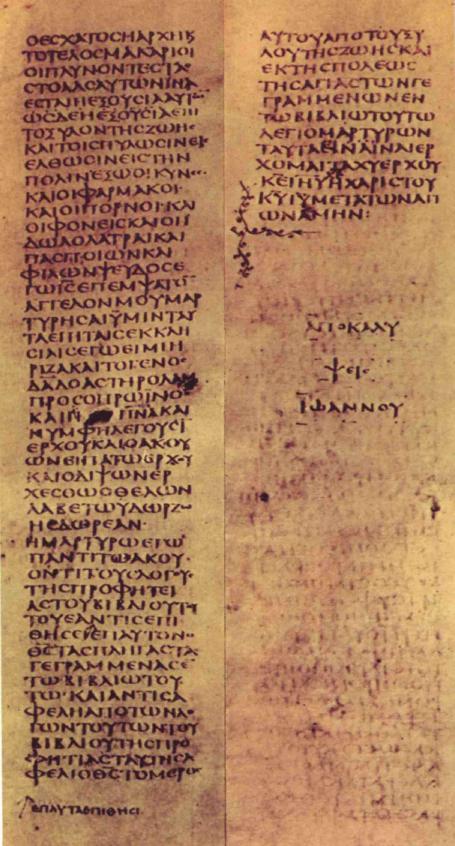 ΟΕΣΧΑΤΟΣΗΑΡΧΗΚ
ΤΟΤΕΛΟΣΜΑΚΑΡΙΟΙ
ΟΙΠΛΥΝΟΝΤΕΣΤΑΣ
ΣΤΟΛΑΣΑΥΤΩΝΙΝΑ
ΕΣΤΑΙΗΕΞΟΥΣΙΑΑΥΤΩ
ΤΟΞΥΛΟΝΤΗΣΖΩΗΣ
ΚΑΙΤΟΙΣΠΥΛΩΣΙΝΕΙΣ
ΕΛΘΩΣΙΝΕΙΣΤΗΝ
ΠΟΛΙΝΕΞΩΟΙΚΥΝΕΣ
ΚΑΙΟΙΦΑΡΜΑΚΟΙ
ΚΑΙΟΙΠΟΡΝΟΙΚΑΙ
ΟΙΦΟΝΕΙΣΚΑΙΟΙΙ
ΔΩΛΟΛΑΤΡΑΙΚΑΙ
ΠΑΣΠΟΙΩΝΚΑΙ
ΦΙΛΩΝΨΕΥΔΟΣΕ
ΓΩΙΣΕΠΕΜΨΑΤΟΝ
ΑΓΓΕΛΟΝΜΟΥΜΑΡ
ΤΥΡΗΣΑΙΥΜΙΝΤΑΥ
ΤΑΕΠΙΤΑΙΣΕΚΚΛΗ
ΣΙΑΙΣΕΓΩΕΙΜΙΗ
ΡΙΖΑΚΑΙΤΟΓΕΝΟΣ
ΔΑΔΟΑΣΤΗΡΟΛΑΜ
ΠΡΟΣΟΠΡΩΙΝΟΣ
ΚΑΙ ΠΝΑΚΑΙ
ΝΥΜΦΗΛΕΓΟΥΣΙ
ΕΡΧΟΥΚΑΙΟΑΚΟΥ
ΩΝΕΙΠΑΤΩΕΡΧΟΥ
ΚΑΙΟΔΙΨΩΝΕΡ
ΧΕΣΘΩΟΘΕΛΩΝ
ΛΑΒΕΤΩΥΔΩΡΖΩ
ΗΣΔΩΡΕΑΝ
ΜΑΡΤΥΡΩΕΓΩ
ΠΑΝΤΙΤΩΑΚΟΥ
ΟΝΤΙΤΟΥΣΛΟΓΟΥΣ
ΤΗΣΠΡΟΦΗΤΕΙ
ΑΣΤΟΥΒΙΒΛΙΟΥΤΟΥ
ΤΟΥΕΑΝΤΙΣΕΠΙ
ΓΕΓΡΑΜΜΕΝΑΣΕ
ΤΩΒΙΒΛΙΩΤΟΥ
ΤΩΚΑΙΑΝΤΙΣΑ
ΦΕΛΗΑΠΟΤΩΝΛΟ
ΓΩΝΤΟΥΤΩΝΤΟΥ
ΒΙΒΛΙΟΥΤΗΣΠΡΟ
ΦΗΤΙΑΣΤΑΥΤΗΣΑ
ΦΕΛΙΟΘΣΤΟΜΕΡΟΣ
ΕΠΑΥΤΑΕΠΙΘΗΣΙ
ΑΥΤΟΥΑΠΟΤΟΥΞΥ
ΛΟΥΤΗΣΖΩΗΣΚΑΙ
ΕΚΤΗΣΠΟΛΕΩΣ
ΤΗΣΑΓΙΑΣΤΩΝΓΕ
ΓΡΑΜΜΕΝΩΝΕΝ
ΤΩΒΙΒΛΙΩΤΟΥΤΩ
ΛΕΓΙΟΜΑΡΤΥΡΩΝ
ΤΑΥΤΑΕΙΝΑΙΝΑΙΕΡ
ΧΟΜΑΙΤΑΧΥΕΡΧΟΥ
ΚΕΙΗΥΗΧΑΡΙΣΤΟΥ
ΚΥΙΥΜΕΤΑΤΩΝΑΓΙ
ΩΝΑΜΗΝ:
ΑΠΟΚΑΛΥ
ΨΕΙΣ
ΙΩΑΝΝΟΥ